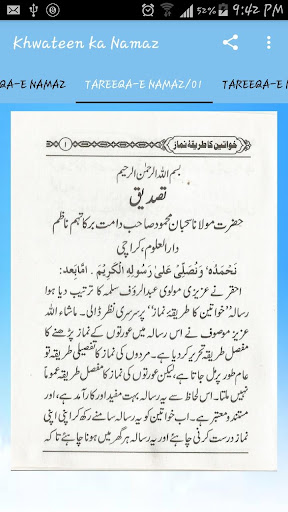 52% 9:42 PM
Khwateen ka Namaz
QA-E NAMAZ TAREEQA-E NAMAZ/01 TAREEQA-E NAM
خواتین کا طریقۂ نماز ۱
بسم اللہ الرحمٰن الرحیم
تصدیق
حضرت مولانا سحبان محمود صاحب دامت برکاتہم ناظم
دارالعلوم، کراچی
نَحْمَدُہٗ وَنُصَلِّیْ عَلیٰ رَسُوْلِہِ الْکَرِیْمِ ۔ امّابعد:
احقر نے عزیزی مولوی عبدالرؤف سلمہ کا ترتیب دیا ہوا
رسالہ "خواتین کا طریقۂ نماز" پر سرسری نظر ڈالی۔ ماشاء اللہ
عزیز موصوف نے اس رسالہ میں عورتوں کے نماز پڑھنے کا
مفصل طریقہ تحریر کردیا ہے۔ مردوں کی نماز کا تفصیلی طریقہ تو
عام طور پر مل جاتا ہے، لیکن عورتوں کی نماز کا مفصل طریقہ عموماً
نہیں ملتا۔ اس لحاظ سے یہ رسالہ بہت مفید اور کارآمد ہے، اور
مستند و معتبر ہے۔ اب خواتین کو یہ رسالہ سامنے رکھ کر اپنی اپنی
نماز درست کرنی چاہئے اور یہ رسالہ ہر گھر میں ہونا چاہئے تاکہ